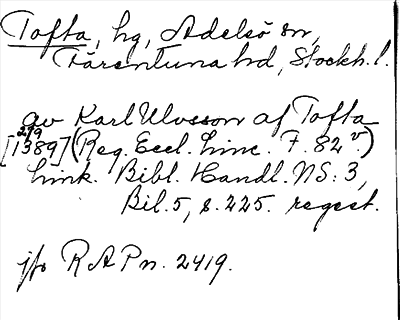 Tofta, hg, Adelsö sn,
Färentuna hd, Stockh. l.
av Karl Ulvsson af Tofta
2/9
[1389] (Reg. Eccl. Linc. F. 82 v.)
Link. Bibl. Handl. NS: 3,
Bil. 5, s. 225. regest.
jfr RAPn. 2419.